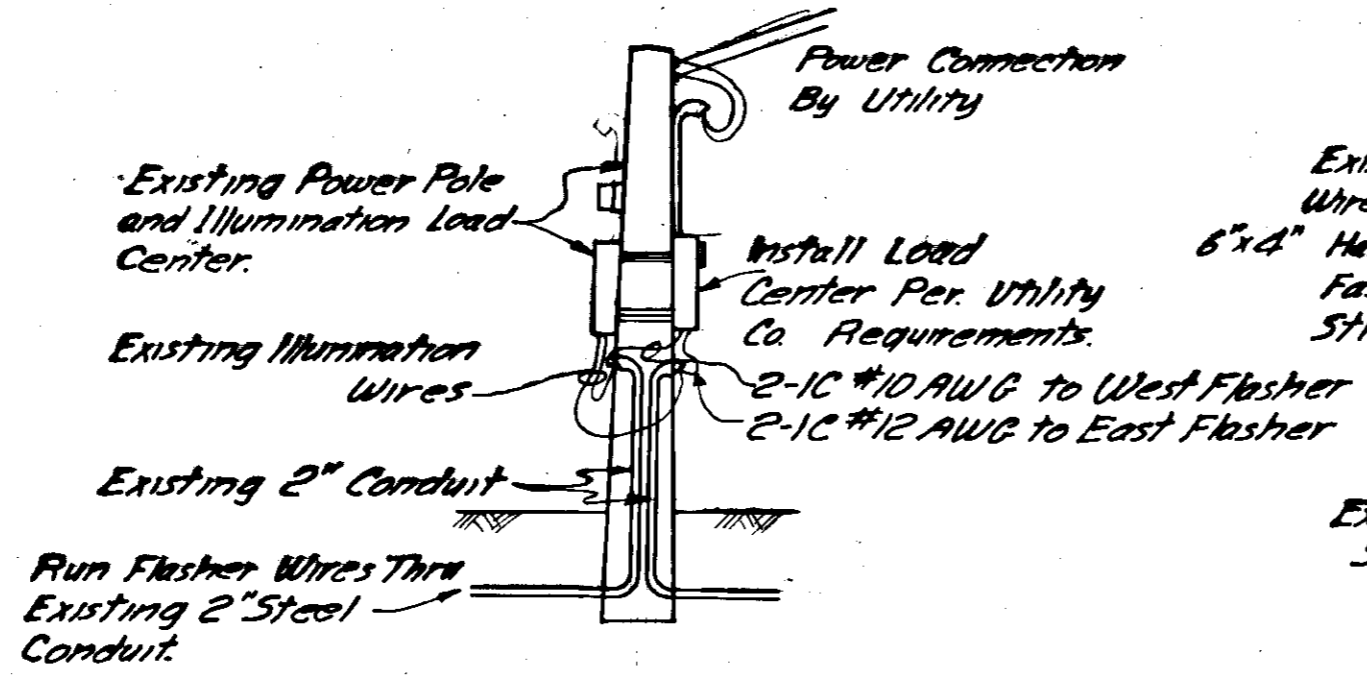 Power Connection
By Utility
Existing Power Pole
and Illumination Load
Center.
Install Load
Center Per. Utility
Co. Requirements.
Existing Illumination
Wires
2-1C #10 AWG to West Flasher
2-1C #12 AWG to East Flasher
Existing 2" Conduit
Run Flasher Wires Thru
Existing 2" Steel
Conduit.
6"x4"